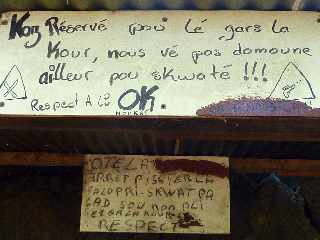 Kaz Réservé pou lé gars la
Kour, nous vé pas domoune
ailleur pou skwaté !!!
Respect A Lo OK.
OTE LA
ARRET PISSER LA
SKWAT PA
LAD SOU NON PLI
RESPECT